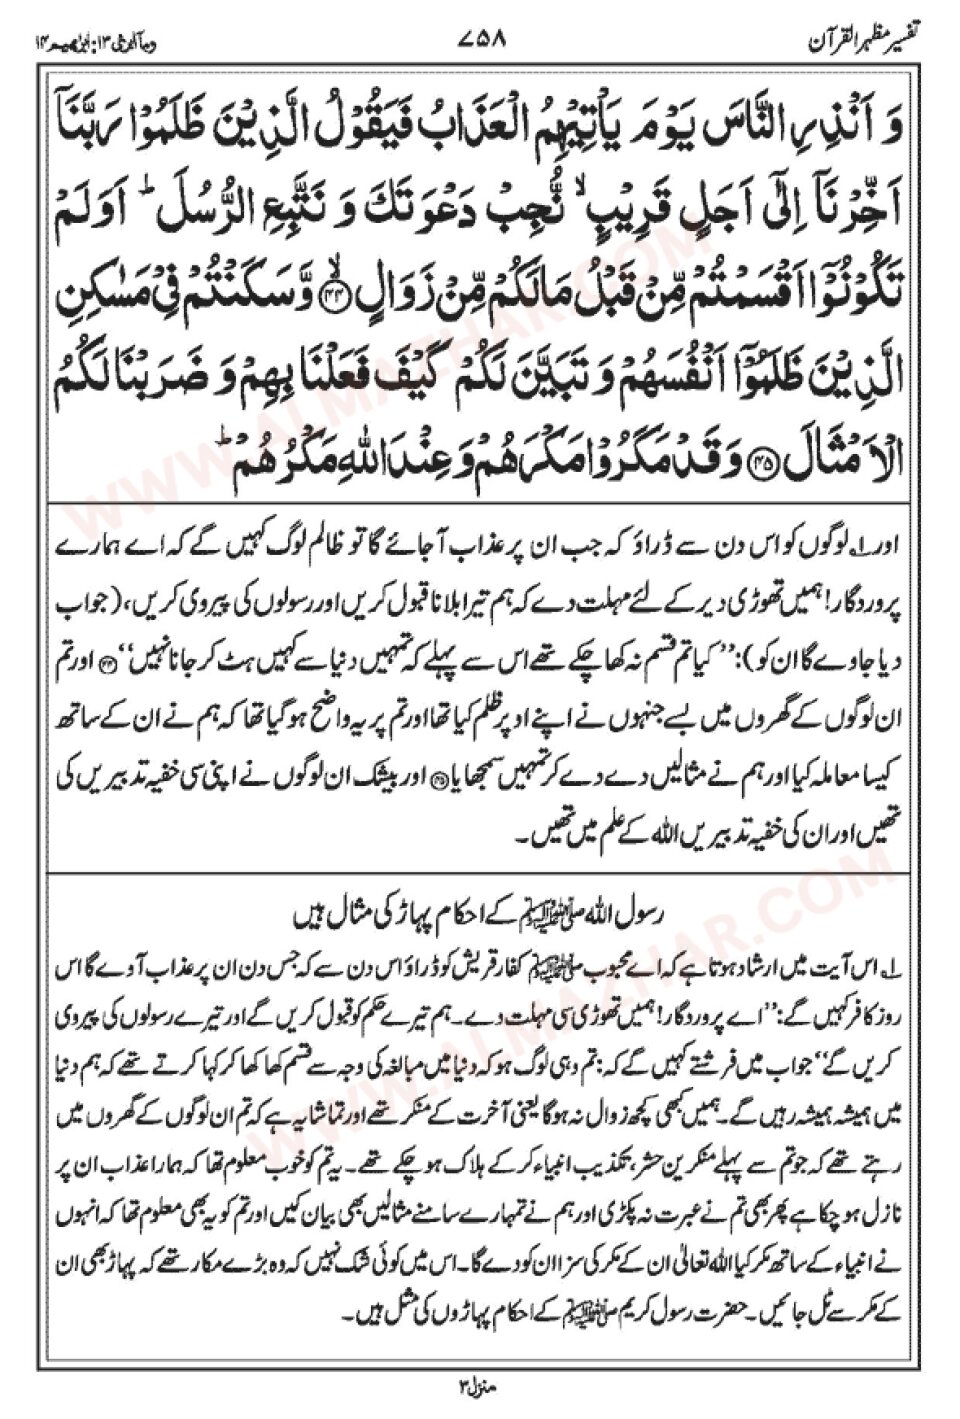 تفسیر مظہر القرآن
۷۵۸
وما ابرئ ۱۳: ابرٰھیم ۱۴
وَ اَنْذِرِ النَّاسَ یَوْمَ یَاْتِیْهِمُ الْعَذَابُ فَیَقُوْلُ الَّذِیْنَ ظَلَمُوْا رَبَّنَاۤ
اَخِّرْنَاۤ اِلٰۤى اَجَلٍ قَرِیْبٍۙ نُّجِبْ دَعْوَتَكَ وَ نَتَّبِعِ الرُّسُلَؕ اَوَلَمْ
تَكُوْنُوْۤا اَقْسَمْتُمْ مِّنْ قَبْلُ مَا لَكُمْ مِّنْ زَوَالٍۙ ﴿۴۴﴾ وَّ سَكَنْتُمْ فِیْ مَسٰكِنِ
الَّذِیْنَ ظَلَمُوْۤا اَنْفُسَهُمْ وَ تَبَیَّنَ لَكُمْ كَیْفَ فَعَلْنَا بِهِمْ وَ ضَرَبْنَا لَكُمُ
الْاَمْثَالَ ﴿۴۵﴾ وَ قَدْ مَكَرُوْا مَكْرَهُمْ وَ عِنْدَ اللّٰهِ مَكْرُهُمْؕ
اور ۱؎ لوگوں کو اس دن سے ڈراؤ کہ جب ان پر عذاب آ جائے گا تو ظالم لوگ کہیں گے کہ اے ہمارے
پروردگار! ہمیں تھوڑی دیر کے لئے مہلت دے کہ ہم تیرا بلانا قبول کریں اور رسولوں کی پیروی کریں، (جواب
دیا جاوے گا ان کو): ’’کیا تم قسم نہ کھا چکے تھے اس سے پہلے کہ تمہیں دنیا سے کہیں ہٹ کر جانا نہیں‘‘ ﴿۴۴﴾ اور تم
ان لوگوں کے گھروں میں بسے جنہوں نے اپنے اوپر ظلم کیا تھا اور تم پر یہ واضح ہو گیا تھا کہ ہم نے ان کے ساتھ
کیسا معاملہ کیا اور ہم نے مثالیں دے دے کر تمہیں سمجھایا ﴿۴۵﴾ اور بیشک ان لوگوں نے اپنی سی خفیہ تدبیریں کی
تھیں اور ان کی خفیہ تدبیریں اللہ کے علم میں تھیں۔
رسول اللہ ﷺ کے احکام پہاڑ کی مثال ہیں
۱؎ اس آیت میں ارشاد ہوتا ہے کہ اے محبوب ﷺ کفار قریش کو ڈراؤ اس دن سے کہ جس دن ان پر عذاب آوے گا اس
روز کافر کہیں گے: ’’اے پروردگار! ہمیں تھوڑی سی مہلت دے۔ ہم تیرے حکم کو قبول کریں گے اور تیرے رسولوں کی پیروی
کریں گے‘‘ جواب میں فرشتے کہیں گے کہ: تم وہی لوگ ہو کہ دنیا میں مبالغہ کی وجہ سے قسم کھا کھا کر کہا کرتے تھے کہ ہم دنیا
میں ہمیشہ ہمیشہ رہیں گے۔ ہمیں کبھی کچھ زوال نہ ہوگا یعنی آخرت کے منکر تھے اور تماشا یہ ہے کہ تم ان لوگوں کے گھروں میں
رہتے تھے کہ جو تم سے پہلے منکرین حشر، تکذیب انبیاء کر کے ہلاک ہو چکے تھے۔ یہ تم کو خوب معلوم تھا کہ ہمارا عذاب ان پر
نازل ہو چکا ہے پھر بھی تم نے عبرت نہ پکڑی اور ہم نے تمہارے سامنے مثالیں بھی بیان کیں اور تم کو یہ بھی معلوم تھا کہ انہوں
نے انبیاء کے ساتھ مکر کیا اللہ تعالیٰ ان کے مکر کی سزا ان کو دے گا۔ اس میں کوئی شک نہیں کہ وہ بڑے مکار تھے کہ پہاڑ بھی ان
کے مکر سے ٹل جائیں۔ حضرت رسول کریم ﷺ کے احکام پہاڑوں کی مثل ہیں۔
منزل ۳
WWW.ALMAZHAR.COM
WWW.ALMAZHAR.COM